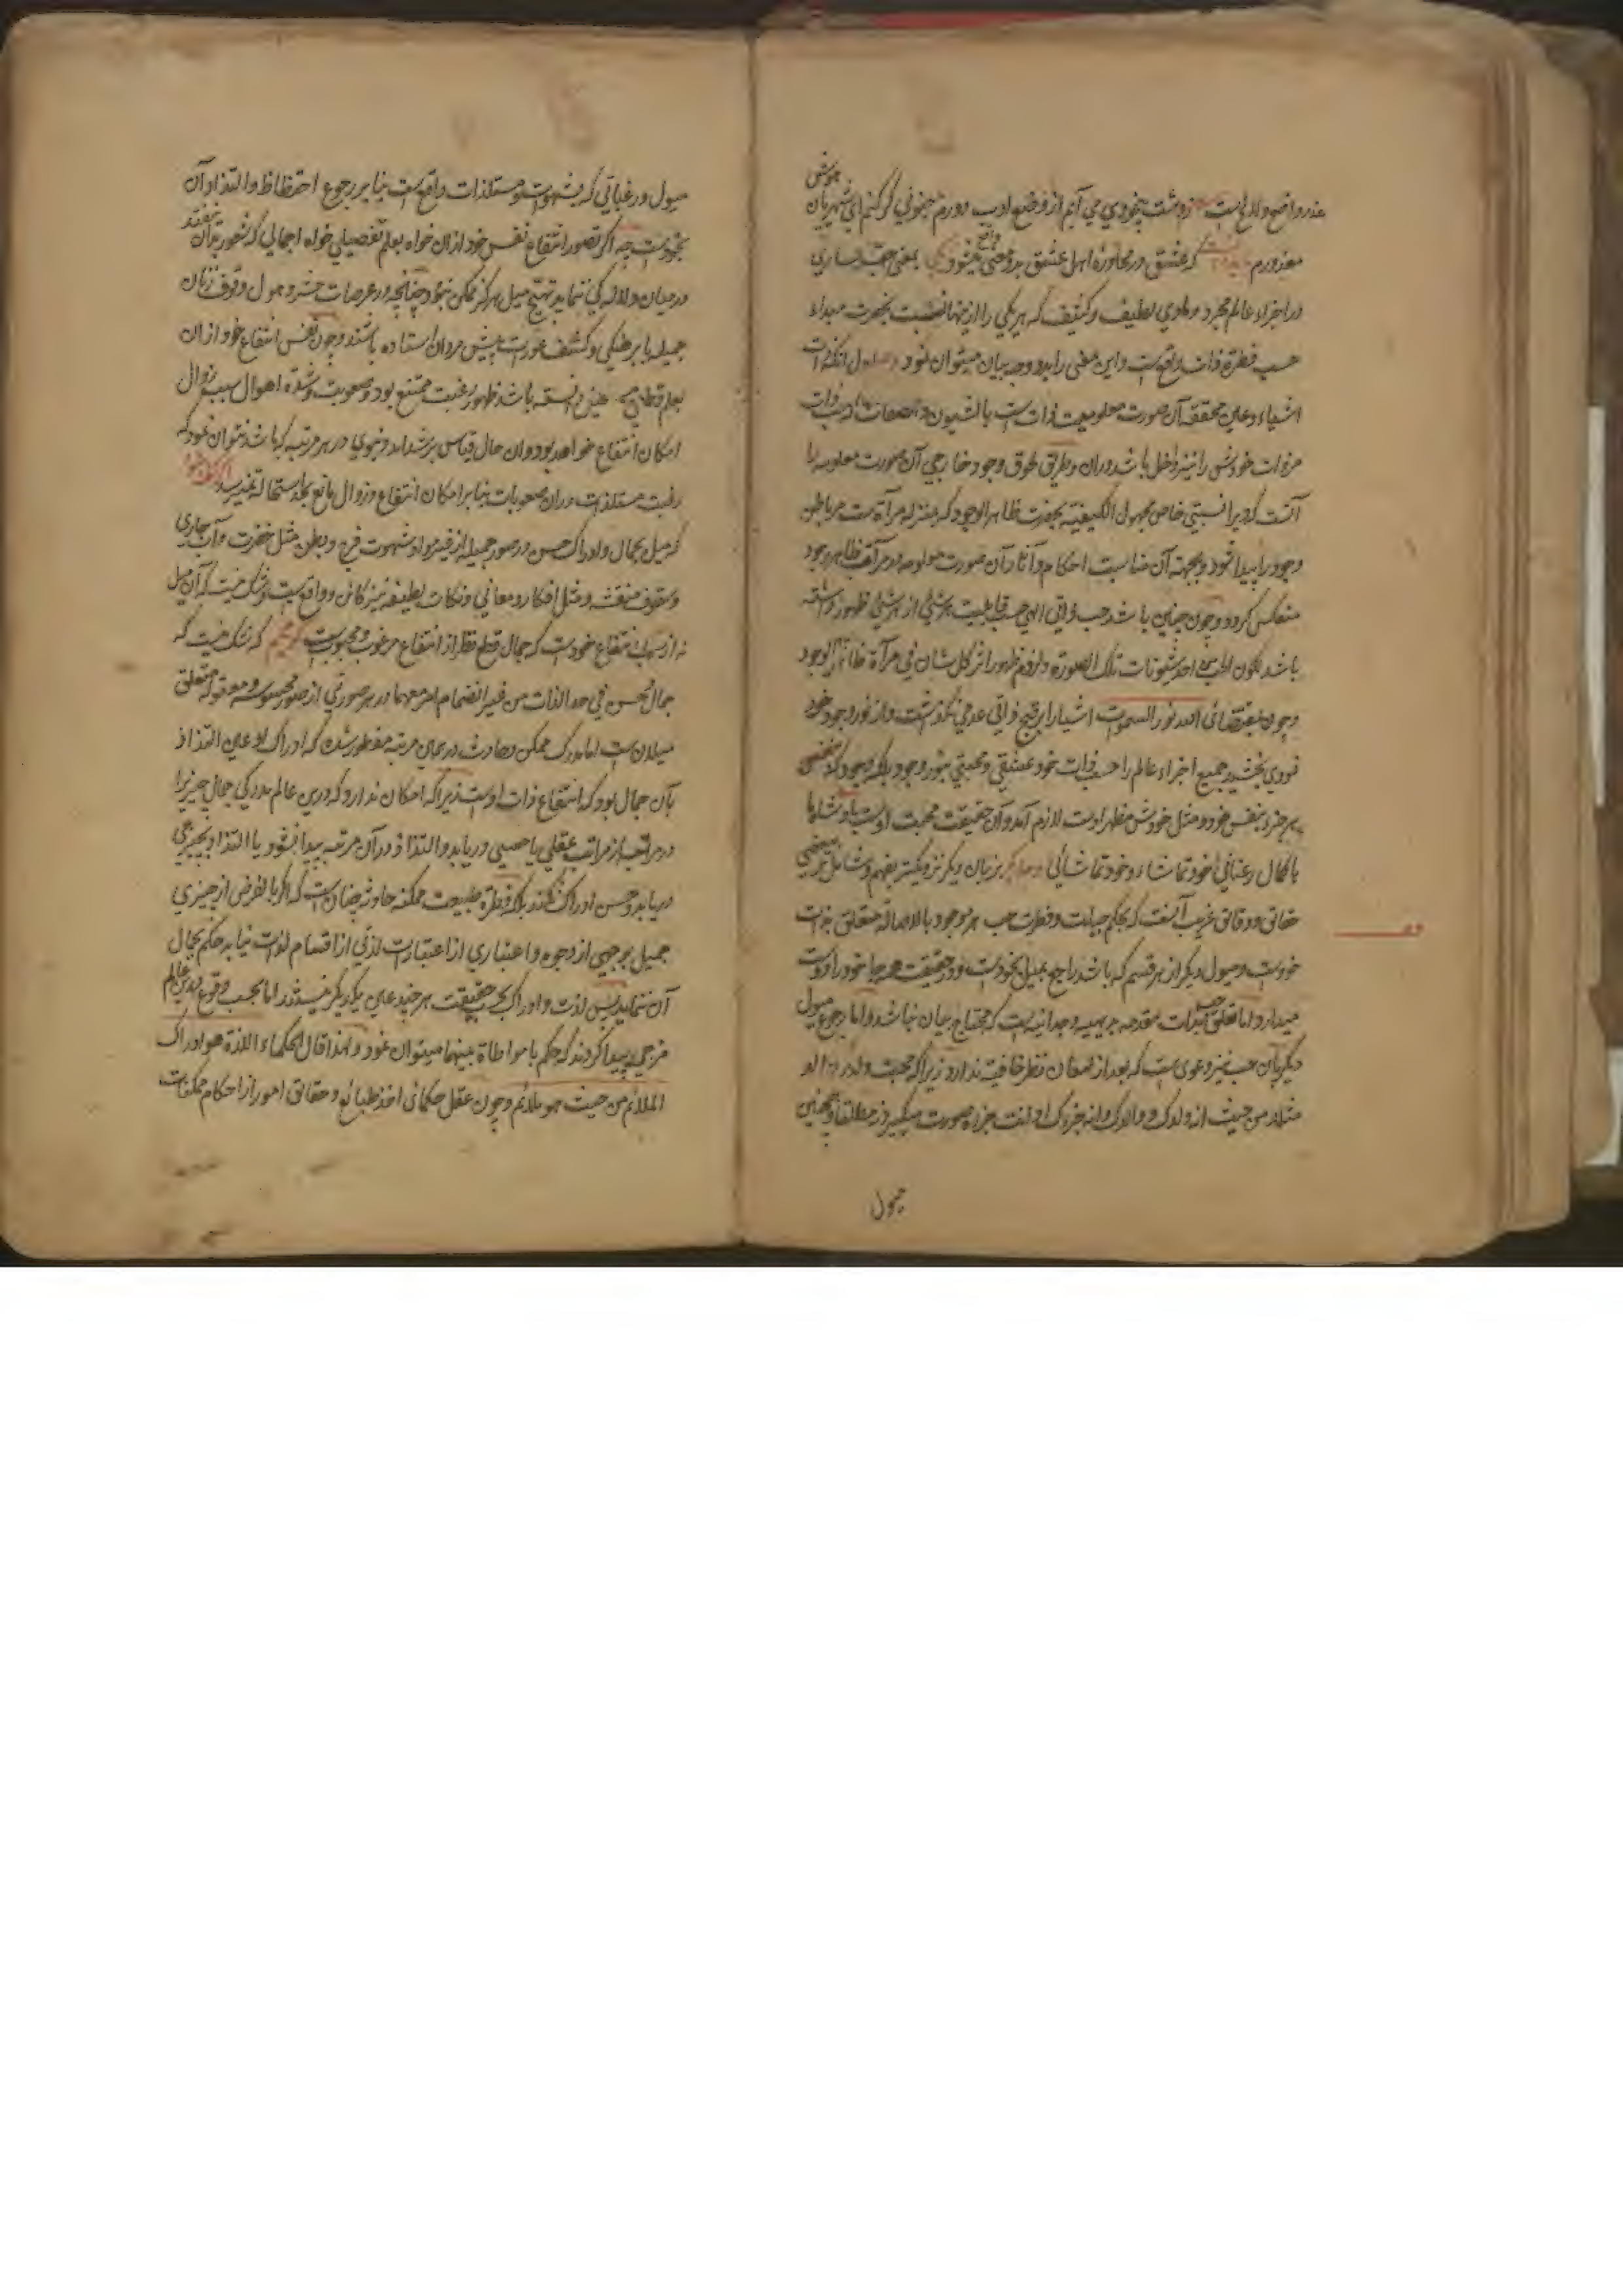 عذر واضح ولایح است ز دهشت بیخودی می آیم از وضع ادب دورم جنونی گر کنم ای شهریان هوش
معذورم که عشق در محاوره اهل عشق بدو معنی واقع میشود یکی بمعنی حب ساری
در اجزاء عالم مجرد و مادی لطیف و کثیف که هر یکی را از اینها نسبت بحضرت مبداء
حسب فطرة ذات واقع است واین معنی را بدو وجه بیان میتوان نمود اول آنکه ذات
اشیاء وعین محققه آن صورت معلومیت ذات است بالشیون والصفات
مر ذات خودش را نیز داخل باشد دران وطریق لحوق وجود خارجی آن صورت معلومه را
آنست که ویرا نسبتی خاص مجهول الکیفیة بحضرت ظاهر الوجود که بمنزله مرآة است مر باطن
وجود را پیدا شود وبجهة آن مناسبت احکام وآثار آن صورت معلومه در مرآت ظاهر وجود
منعکس گردد وچون چنین باشد حب ذاتی الهی حسب قابلیت هر شئ از هر شئ ظهور داشته
باشد لکون الحب احد شئونات تلک الصورة ولزوم ظهور اثر کل شان فی مرآة ظاهر الوجود
وچون بمقتضائ الله نور السموات اشیا را بر قبح ذاتی عدمی نگذاشت واز نور وجود خود
نوری بخشید جمیع اجزاء عالم را حسب ذات خود عشقی ومحبتی بنور وجود بلکه بوجود که مقتضی
هر جزو بنفس خود ومثل خودش مظهر اوست لازم آمد وآن حقیقت محبت اوست
با کمال رعنائی خود تماشاء وخود تماشائی بزبان دیگر نزدیکتر بفهم وشامل بر بعضی
حقائق ودقائق غریب آنست که بحکم جبلت وفطرت حب هر موجود بالاصالة متعلق بذات
خودست ومیول دیگر از هر قسم که باشد راجع بمیل بخودست ودر حقیقت همه جا خود را دوست
میدارد اما تعلق حب بذات مقدمه بدیهیه وجدانیه است که محتاج بیان نباشد واما رجوع میول
دیگر بآن حب نیز دعوی است که بعد از امعان نظر خافیت ندارد زیرا که محبت ولد والد
مثلا من حیث انه ولدک و والدک وانه جزءک او انت جزءه صورت میگیرد نه مطلقا وهمچنین
میول
میول ورغباتی که بشهوات ومستلذات واقع است بنابر رجوع احتظاظ والتذاذ آن
بخودست چه اگر تصور انتفاع نفس خود ازان خواه بعلم تفصیلی خواه اجمالی که تصور آن بنفسه
درمیان ودلالگی ننماید تهییج میل هرگز ممکن نبود چنانچه در عرصات حشر وهول وقوف زنان
جمیله با برهنگی وکشف عورت پیش مردان استاده باشند وچون نفس انتفاع خود ازان
بعلم قطعی ممتنع دانسته باشد ظهور رغبت ممتنع بود وصعوبت وشدة اهوال سبب زوال
امکان انتفاع خواهد بود وآن حال قیاس بر شداید دنیوی در هر مرتبه که باشد نتوان نمود که
رغبت مستلذات دران صعوبات بنابر امکان انتفاع وزوال مانع بحد استحاله نمیرسد
که میل بجمال وادراک حسن در صور جمیله از غیر مواد شهوت فرج وبطن مثل خضرت وآب جاری
وسقوف منقشه ومثل افکار ومعانی ونکات لطیفه نیز کائن وواقع است وشک نیست که آن میل
نه از سبب انتفاع خودست که جمال قطع نظر از انتفاع مرغوب ومحبوب است گوئیم که شک نیست که
جمال وحسن فی حد الذات من غیر انضمام امر معهما در هر صورتی از صور محسوسه ومعقوله متعلق
میلان است اما مدرک ممکن وحادث در همان مرتبه مفطور شده که ادراک او عین التذاذ
بآن جمال بود که انتفاع ذات اوست زیرا که امکان ندارد که درین عالم مدرکی جمال چیزیرا
در مرتبه از مراتب عقلی یا حسی دریابد والتذاذ در آن مرتبه پیدا نشود یا التذاذ بچیزی
دریابد وحسن ادراک نکند بلکه فطرة طبیعت ممکنه حادثه چنان است که اگر بالفرض از چیزی
جمیل بوجهی از وجوه واعتباری از اعتبارات لذتی از اقسام لذات نیابد حکم بجمال
آن ننماید پس لذت وادراک بحسب حقیقت هر چند عین یکدیگر نیستند اما بحسب وقوع بدین عالم
مزجی پیدا کردند که حکم بامواطاة بینهما میتوان نمود ولهذا قال الحکماء اللذة هو ادراک
الملائم من حیث هو ملائم وچون عقل حکمائ اخذ طبائع وحقائق امور از احکام ممکنات